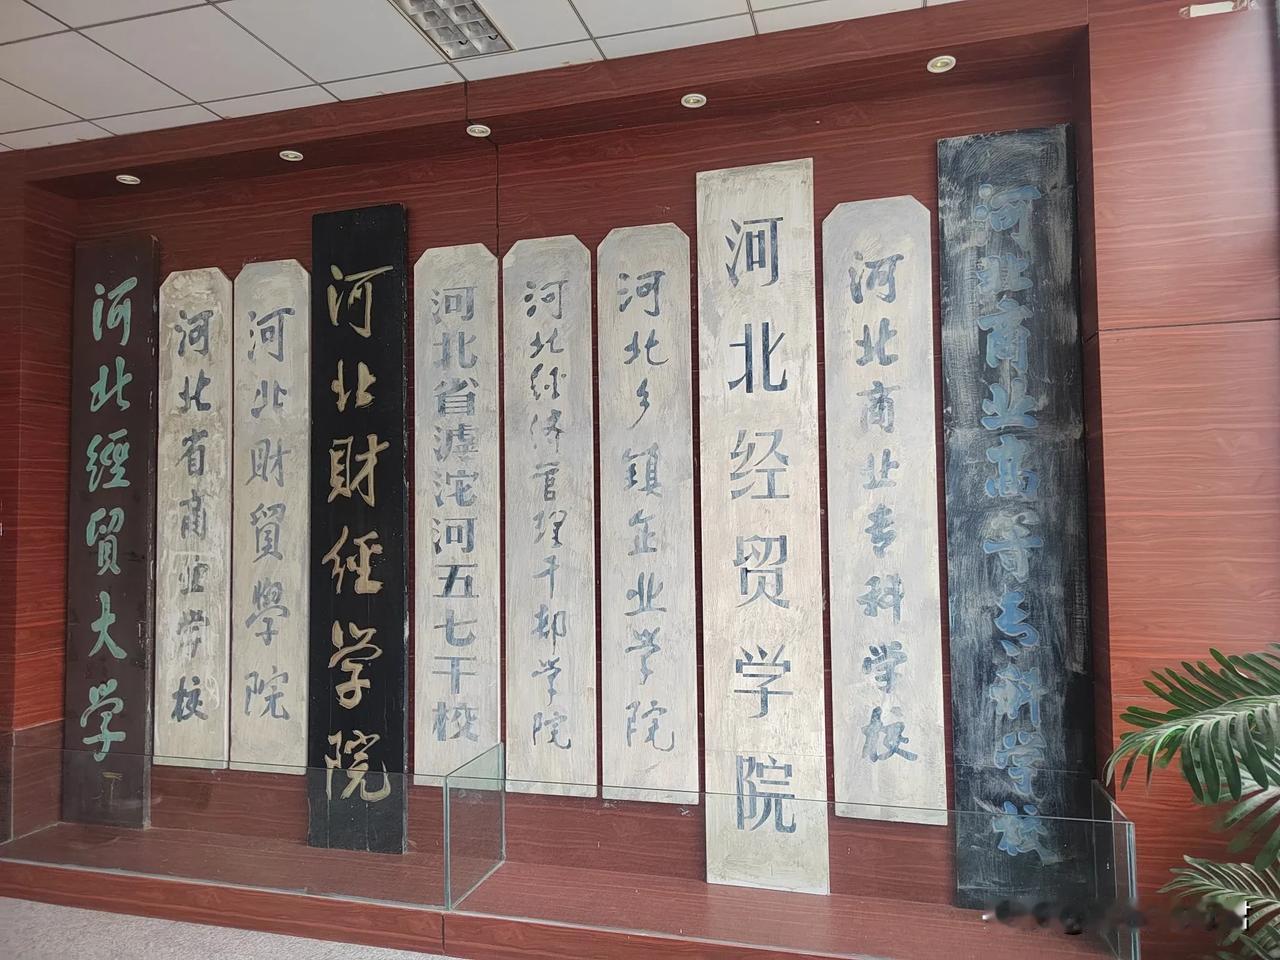 河北經貿大学
河北省商业学校
河北財貿學院
河北財经学院
河北省滹沱河五七干校
河北经济管理干部学院
河北乡镇企业学院
河北经贸学院
河北商业专科学校
河北商业高等专科学校